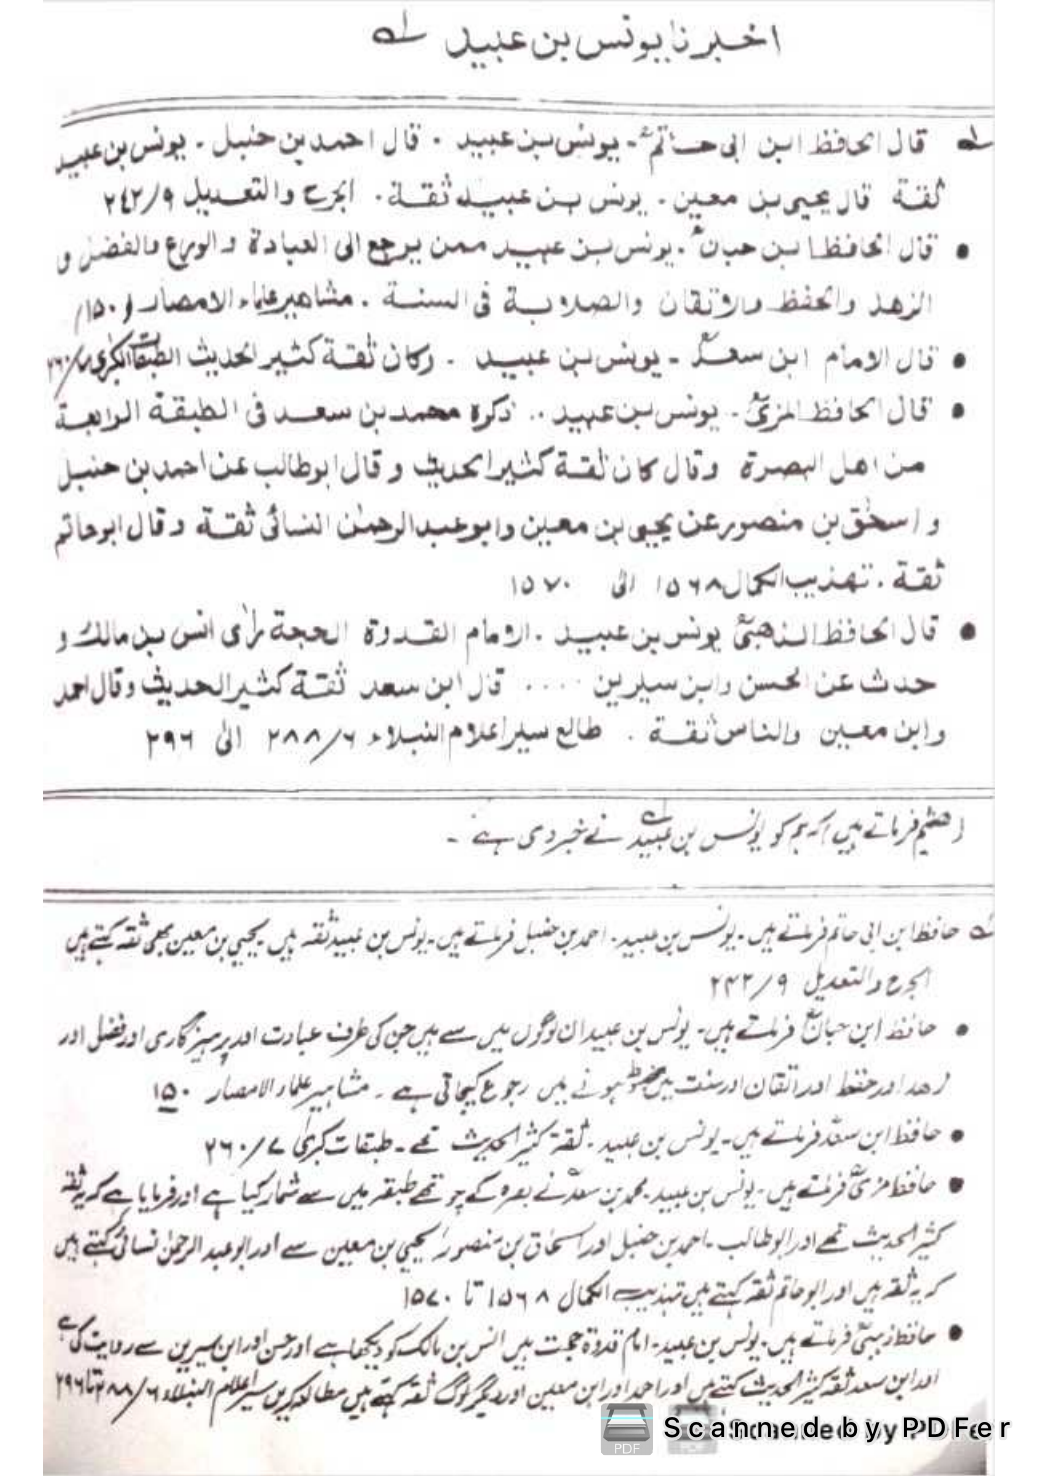 اخبرنا يونس بن عبيد لـه
لـه قال الحافظ ابن ابی حاتمؒ - یونس بن عبید . قال احمد بن حنبل . یونس بن عبید
ثقة قال یحیی بن معین . یونس بن عبید ثقة . الجرح والتعدیل ۲٤۲/۹
• قال الحافظ ابن حبانؒ . یونس بن عبید ممن یرجع الی العبادة و الورع والفضل و
الزهد والحفظ والاتقان والصلابة فی السنة . مشاهیر علماء الامصار (۱۵۰/
• قال الامام ابن سعدؒ - یونس بن عبید . وکان ثقة کثیر الحدیث الطبقات الکبریٰ
• قال الحافظ المزیؒ - یونس بن عبید .. ذکرہ محمد بن سعد فی الطبقة الرابعة
من اهل البصرة وقال کان ثقة کثیر الحدیث و قال ابوطالب عن احمد بن حنبل
و اسحٰق بن منصور عن یحیی بن معین وابو عبد الرحمٰن النسائی ثقة و قال ابو حاتم
ثقة . تهذیب الکمال ۱۵۶۸ الی ۱۵۷۰
• قال الحافظ الذهبیؒ یونس بن عبید . الامام القدوة الحجة رأی انس بن مالک و
حدث عن الحسن وابن سیرین .... قال ابن سعد ثقة کثیر الحدیث و قال احمد
وابن معین والناس ثقة . طالع سیر اعلام النبلاء ۲۸۸/۶ الی ۲۹۶
(هشیم فرماتے ہیں) کہ ہم کو یونس بن عبید لـه نے خبر دی ہے -
لـه حافظ ابن ابی حاتم فرماتے ہیں - یونس بن عبید - احمد بن حنبل فرماتے ہیں - یونس بن عبید ثقہ ہیں - یحیی بن معین بھی ثقہ کہتے ہیں
الجرح والتعدیل ۲۴۲/۹
• حافظ ابن حبانؒ فرماتے ہیں - یونس بن عبید ان لوگوں میں سے ہیں جن کی طرف عبادت اور پرہیزگاری اور فضل اور
زھد اور حفظ اور اتقان اور سنت میں مضبوط ہونے میں رجوع کیجاتی ہے - مشاہیر علماء الامصار ۱۵۰
• حافظ ابن سعدؒ فرماتے ہیں - یونس بن عبید - ثقہ کثیر الحدیث تھے - طبقات کبریٰ ۲۶۰/۷
• حافظ مزیؒ فرماتے ہیں - یونس بن عبید - محمد بن سعدؒ نے بصرہ کے چوتھے طبقہ میں سے شمار کیا ہے اور فرمایا ہے کہ یہ ثقہ
کثیر الحدیث تھے اور ابوطالب - احمد بن حنبل اور اسحاق بن منصور یحیی بن معین سے اور ابو عبد الرحمٰن نسائیؒ کہتے ہیں
کہ یہ ثقہ ہیں اور ابو حاتم ثقہ کہتے ہیں تہذیب الکمال ۱۵۶۸ تا ۱۵۷۰
• حافظ ذہبیؒ فرماتے ہیں - یونس بن عبید - امام قدوۃ حجت ہیں انس بن مالک کو دیکھا ہے اور حسن اور ابن سیرین سے روایت کی ہے
اور ابن سعد ثقہ کثیر الحدیث کہتے ہیں اور احمد اور ابن معین اور دیگر لوگ ثقہ کہتے ہیں مطالعہ کریں سیر اعلام النبلاء ۲۸۸/۶ تا ۲۹۶
Scanned by PDFer